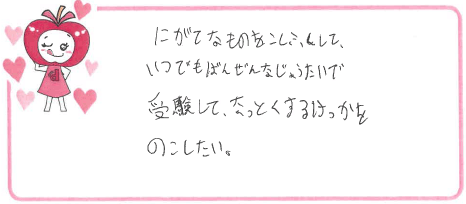 にがてなものをこくふくして、
いつでもばんぜんなじょうたいで
受験して、なっとくするけっかを
のこしたい。